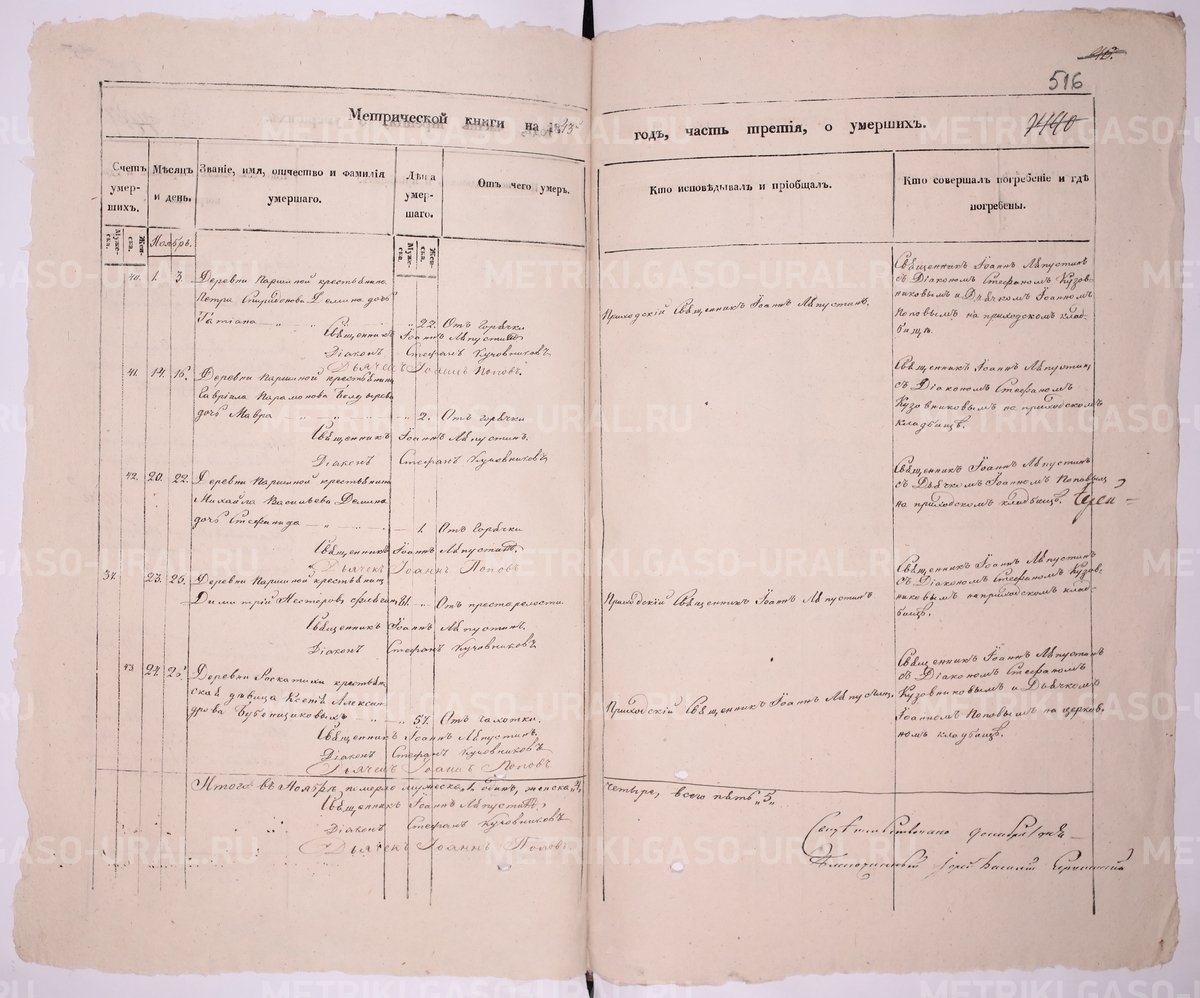 516
Метрической книги на 1843й
годъ, часть третія, о умершихъ.
Счетъ умер-
шихъ.
Мѣсяцъ
и день.
Званіе, имя, отчество и фамилія
умершаго.
Лѣта
умер-
шаго.
Отъ чего умеръ.
Кто исповѣдывалъ и пріобщалъ.
Кто совершалъ погребеніе и гдѣ
погребены.
Муже-
ска.
Жен-
ска.
Ноябрь.
Муже-
ска.
Жен-
ска.
40. 1. 3. Деревни Паршиной крестьянина
Петра Спиридонова Демина дочь
Татіана 22. Отъ горячки
Священникъ Іоаннъ Лѣпустинъ
Діаконъ Стефанъ Кузовниковъ
Дьячекъ Іоаннъ Поповъ.
Приходскій Священникъ Іоаннъ Лѣпустинъ.
Священникъ Іоаннъ Лѣпустинъ
съ Діакономъ Стефаномъ Кузов-
никовымъ и Дьячкомъ Іоанномъ
Поповымъ на приходскомъ клад-
бищѣ.
41. 14. 16. Деревни Паршиной крестьянина
Гавріила Парамонова
дочь Мавра 2. Отъ горячки
Священникъ Іоаннъ Лѣпустинъ.
Діаконъ Стефанъ Кузовниковъ
Священникъ Іоаннъ Лѣпустинъ
съ Діакономъ Стефаномъ
Кузовниковымъ на приходскомъ
кладбищѣ.
42. 20. 22. Деревни Паршиной крестьянина
Михайла Васильева Демина
дочь Стефанида 1. Отъ горячки
Священникъ Іоаннъ Лѣпустинъ.
Дьячекъ Іоаннъ Поповъ
Священникъ Іоаннъ Лѣпустинъ
съ Дьячкомъ Іоанномъ Поповымъ
на приходскомъ кладбищѣ.
37. 23. 25. Деревни Паршиной крестьянинъ
Димитрій Несторовъ 81. Отъ престарелости
Священникъ Іоаннъ Лѣпустинъ.
Діаконъ Стефанъ Кузовниковъ
Приходскій Священникъ Іоаннъ Лѣпустинъ
Священникъ Іоаннъ Лѣпустинъ
съ Діакономъ Стефаномъ Кузов-
никовымъ на приходскомъ клад-
бищѣ.
43. 24. 25. Деревни Роскатихи крестьян-
ская дѣвица Ксенія Алексан-
дрова Бубенщиковыхъ 57. Отъ чахотки.
Священникъ Іоаннъ Лѣпустинъ.
Діаконъ Стефанъ Кузовниковъ
Дьячекъ Іоаннъ Поповъ
Приходскій Священникъ Іоаннъ Лѣпустинъ,
Священникъ Іоаннъ Лѣпустинъ
съ Діакономъ Стефаномъ
Кузовниковымъ и Дьячкомъ
Іоанномъ Поповымъ на церков-
номъ кладбищѣ.
Итого въ Ноябрѣ померло мужеска 1, одинъ, женска „4„
четыре, всего пять „5„
Священникъ Іоаннъ Лѣпустинъ,
Діаконъ Стефанъ Кузовниковъ
Дьячекъ Іоаннъ Поповъ.
Свидѣтельствовано декабря 1 дня
Благочинный Іерей Василій
METRIKI.GASO-URAL.RU